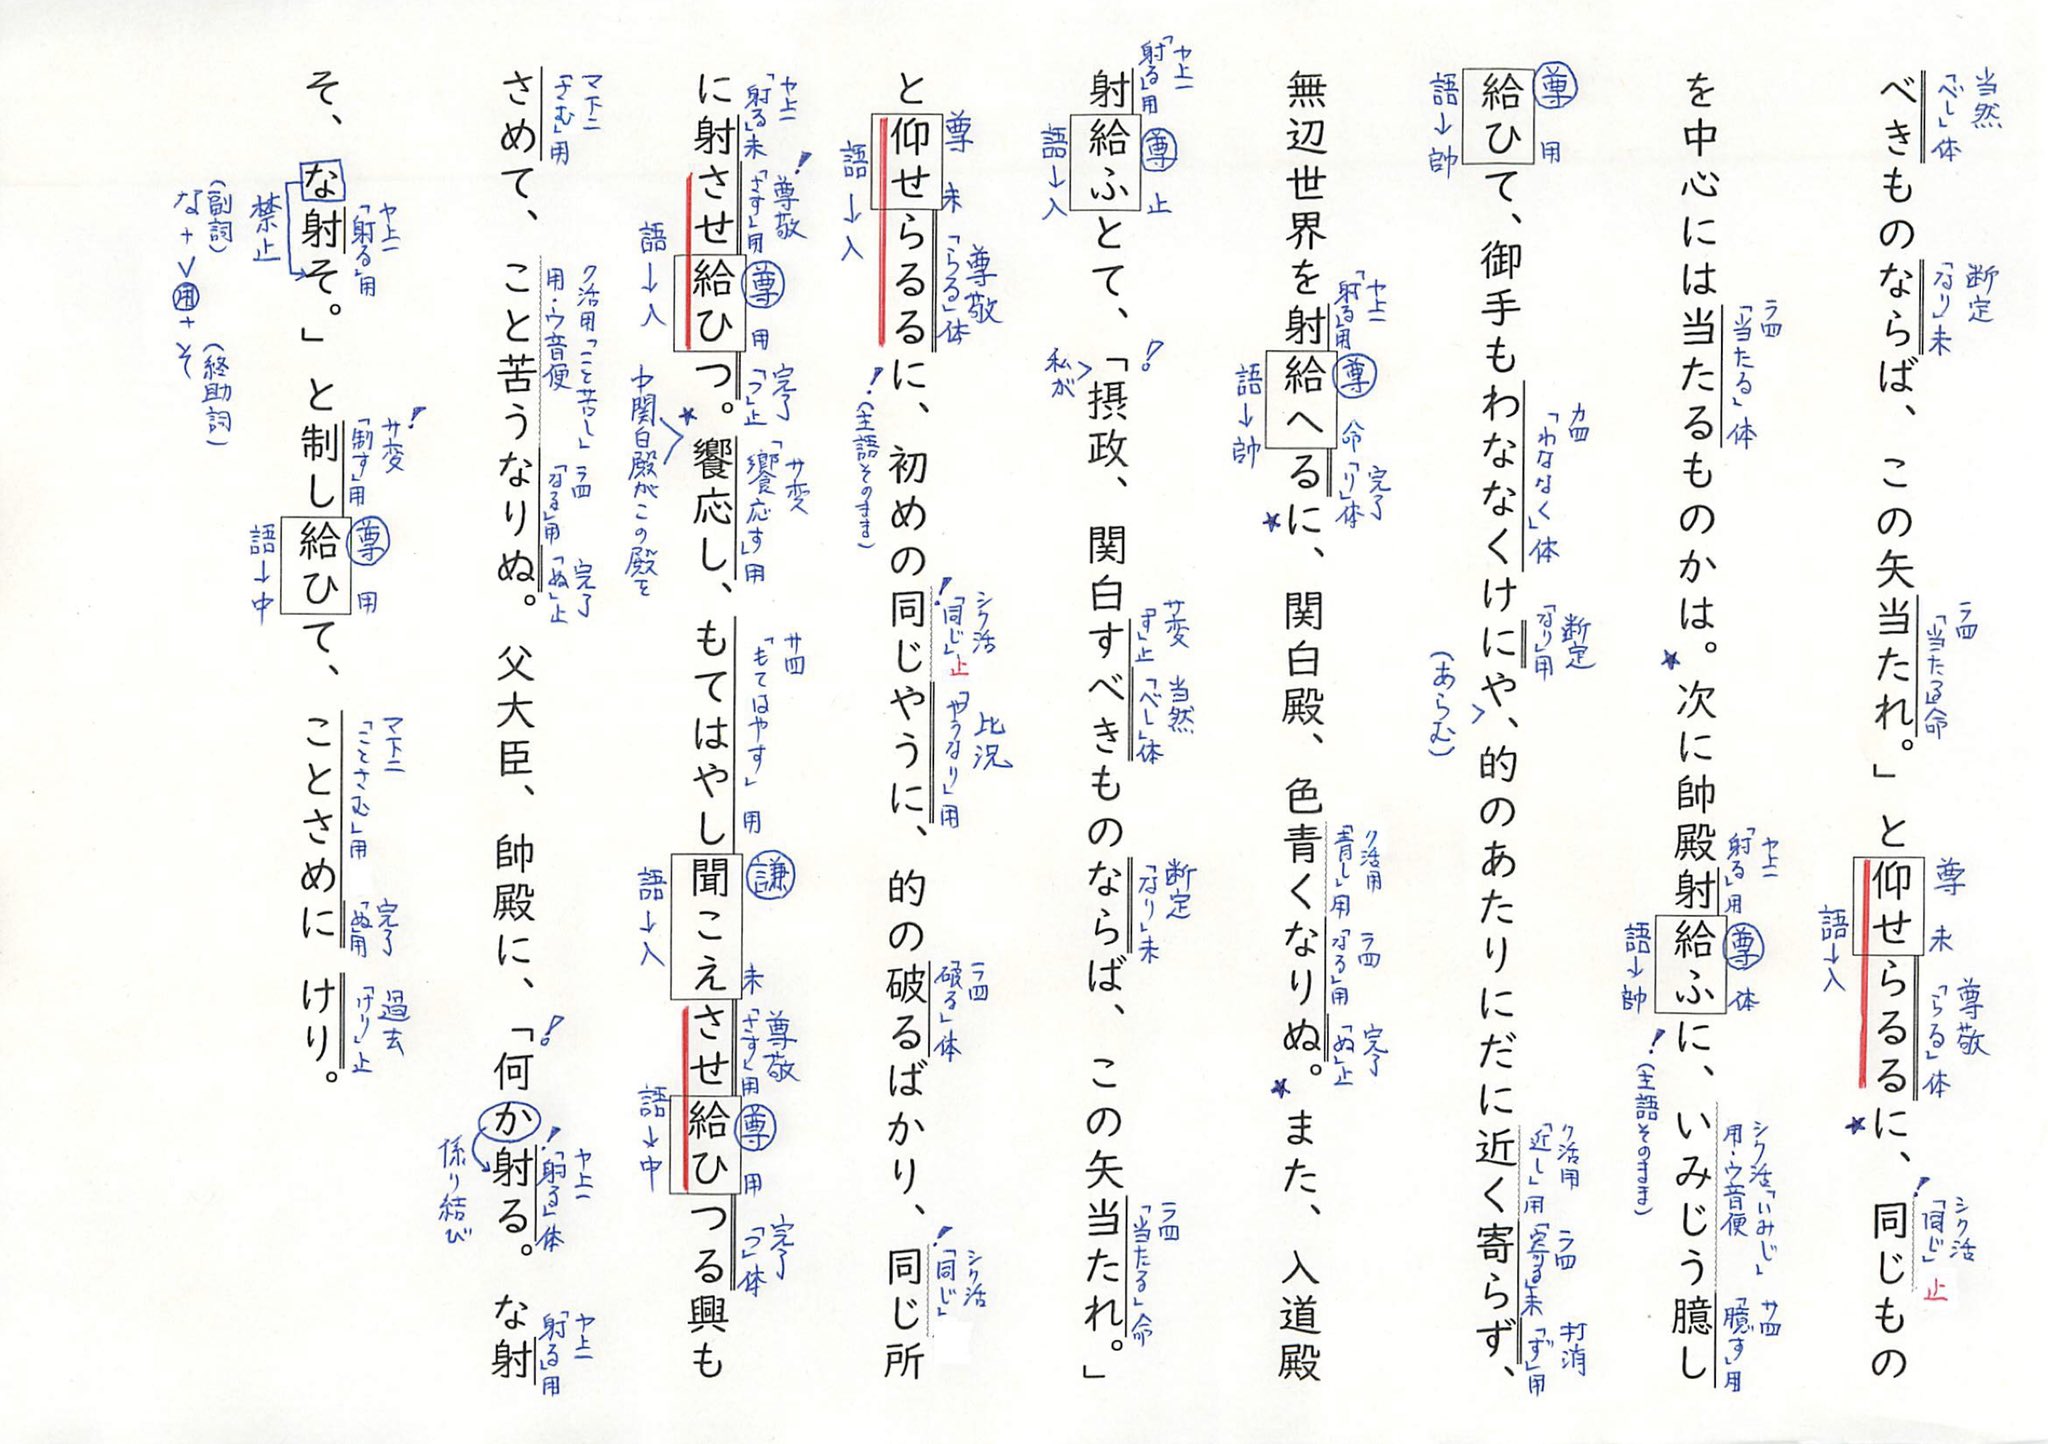 当然
「べし」体
断定
「なり」未
ラ四
「当たる」命
尊
未
尊敬
「らる」体
シク活
「同じ」止
べきものならば、この矢当たれ。」と仰せらるるに、同じもの
語→入
ラ四
「当たる」体
ヤ上一
「射る」用
尊
体
シク活「いみじ」
用・ウ音便
サ四
「臆す」用
を中心には当たるものかは。次に帥殿射給ふに、いみじう臆し
語→帥
(主語そのまま)
尊
用
カ四
「わななく」体
断定
「なり」用
ク活用
「近し」用
ラ四
「寄る」未
打消
「ず」用
給ひて、御手もわななくけにや、的のあたりにだに近く寄らず、
語→帥
(あらむ)
ヤ上一
「射る」用
尊
命
完了
「り」体
ク活用
「青し」用
ラ四
「なる」用
完了
「ぬ」止
無辺世界を射給へるに、関白殿、色青くなりぬ。また、入道殿
語→帥
ヤ上一
「射る」用
尊
止
サ変
「す」止
当然
「べし」体
断定
「なり」未
ラ四
「当たる」命
射給ふとて、「摂政、関白すべきものならば、この矢当たれ。」
語→入
私が
尊
未
尊敬
「らる」体
シク活
「同じ」止
比況
「やうなり」用
ラ四
「破る」体
シク活
「同じ」
と仰せらるるに、初めの同じやうに、的の破るばかり、同じ所
語→入
(主語そのまま)
ヤ上一
「射る」未
尊敬
「さす」用
尊
用
完了
「つ」止
サ変
「饗応す」用
サ四
「もてはやす」用
謙
未
尊敬
「さす」用
尊
用
完了
「つ」体
に射させ給ひつ。饗応し、もてはやし聞こえさせ給ひつる興も
語→入
中関白殿がこの殿を
語→入
語→中
マ下二
「さむ」用
ク活用「こと苦し」
用・ウ音便
ラ四
「なる」用
完了
「ぬ」止
ヤ上一
「射る」体
ヤ上一
「射る」用
さめて、こと苦うなりぬ。父大臣、帥殿に、「何か射る。な射
係り結び
ヤ上一
「射る」用
サ変
「制す」用
尊
用
マ下二
「ことさむ」用
完了
「ぬ」用
過去
「けり」止
そ、な射そ。」と制し給ひて、ことさめにけり。
禁止
語→中
(副詞) (終助詞)
な+V用+そ